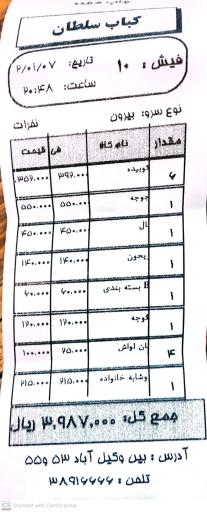 کباب سلطان
فیش: ۱۰ تاریخ: ۲/۰۱/۰۷
ساعت: ۲۰:۴۸
نوع سرو: بیرون نفرات
مقدار نام کالا فی قیمت
۶ کوبیده ۳۹۲.۰۰۰ ۳۵۲.۰۰۰
۱ جوجه ۵۵۰.۰۰۰ ۵۵۰.۰۰۰
۱ بال ۴۵۰.۰۰۰ ۴۵۰.۰۰۰
۱ یحون ۱۴۰.۰۰۰ ۱۴۰.۰۰۰
۱ بسته بندی ۶۰.۰۰۰ ۶۰.۰۰۰
۱ گوجه ۱۲۰.۰۰۰ ۱۲۰.۰۰۰
۴ نان لواش ۲۵.۰۰۰ ۱۰۰.۰۰۰
۱ وشابه خانواده ۲۱۵.۰۰۰ ۲۱۵.۰۰۰
جمع کل: ۳.۹۸۷.۰۰۰ ریال
آدرس: بین وکیل آباد ۵۳ و ۵۵
تلفن: ۳۸۹۱۶۶۶۶
CS Scanned with CamScanner